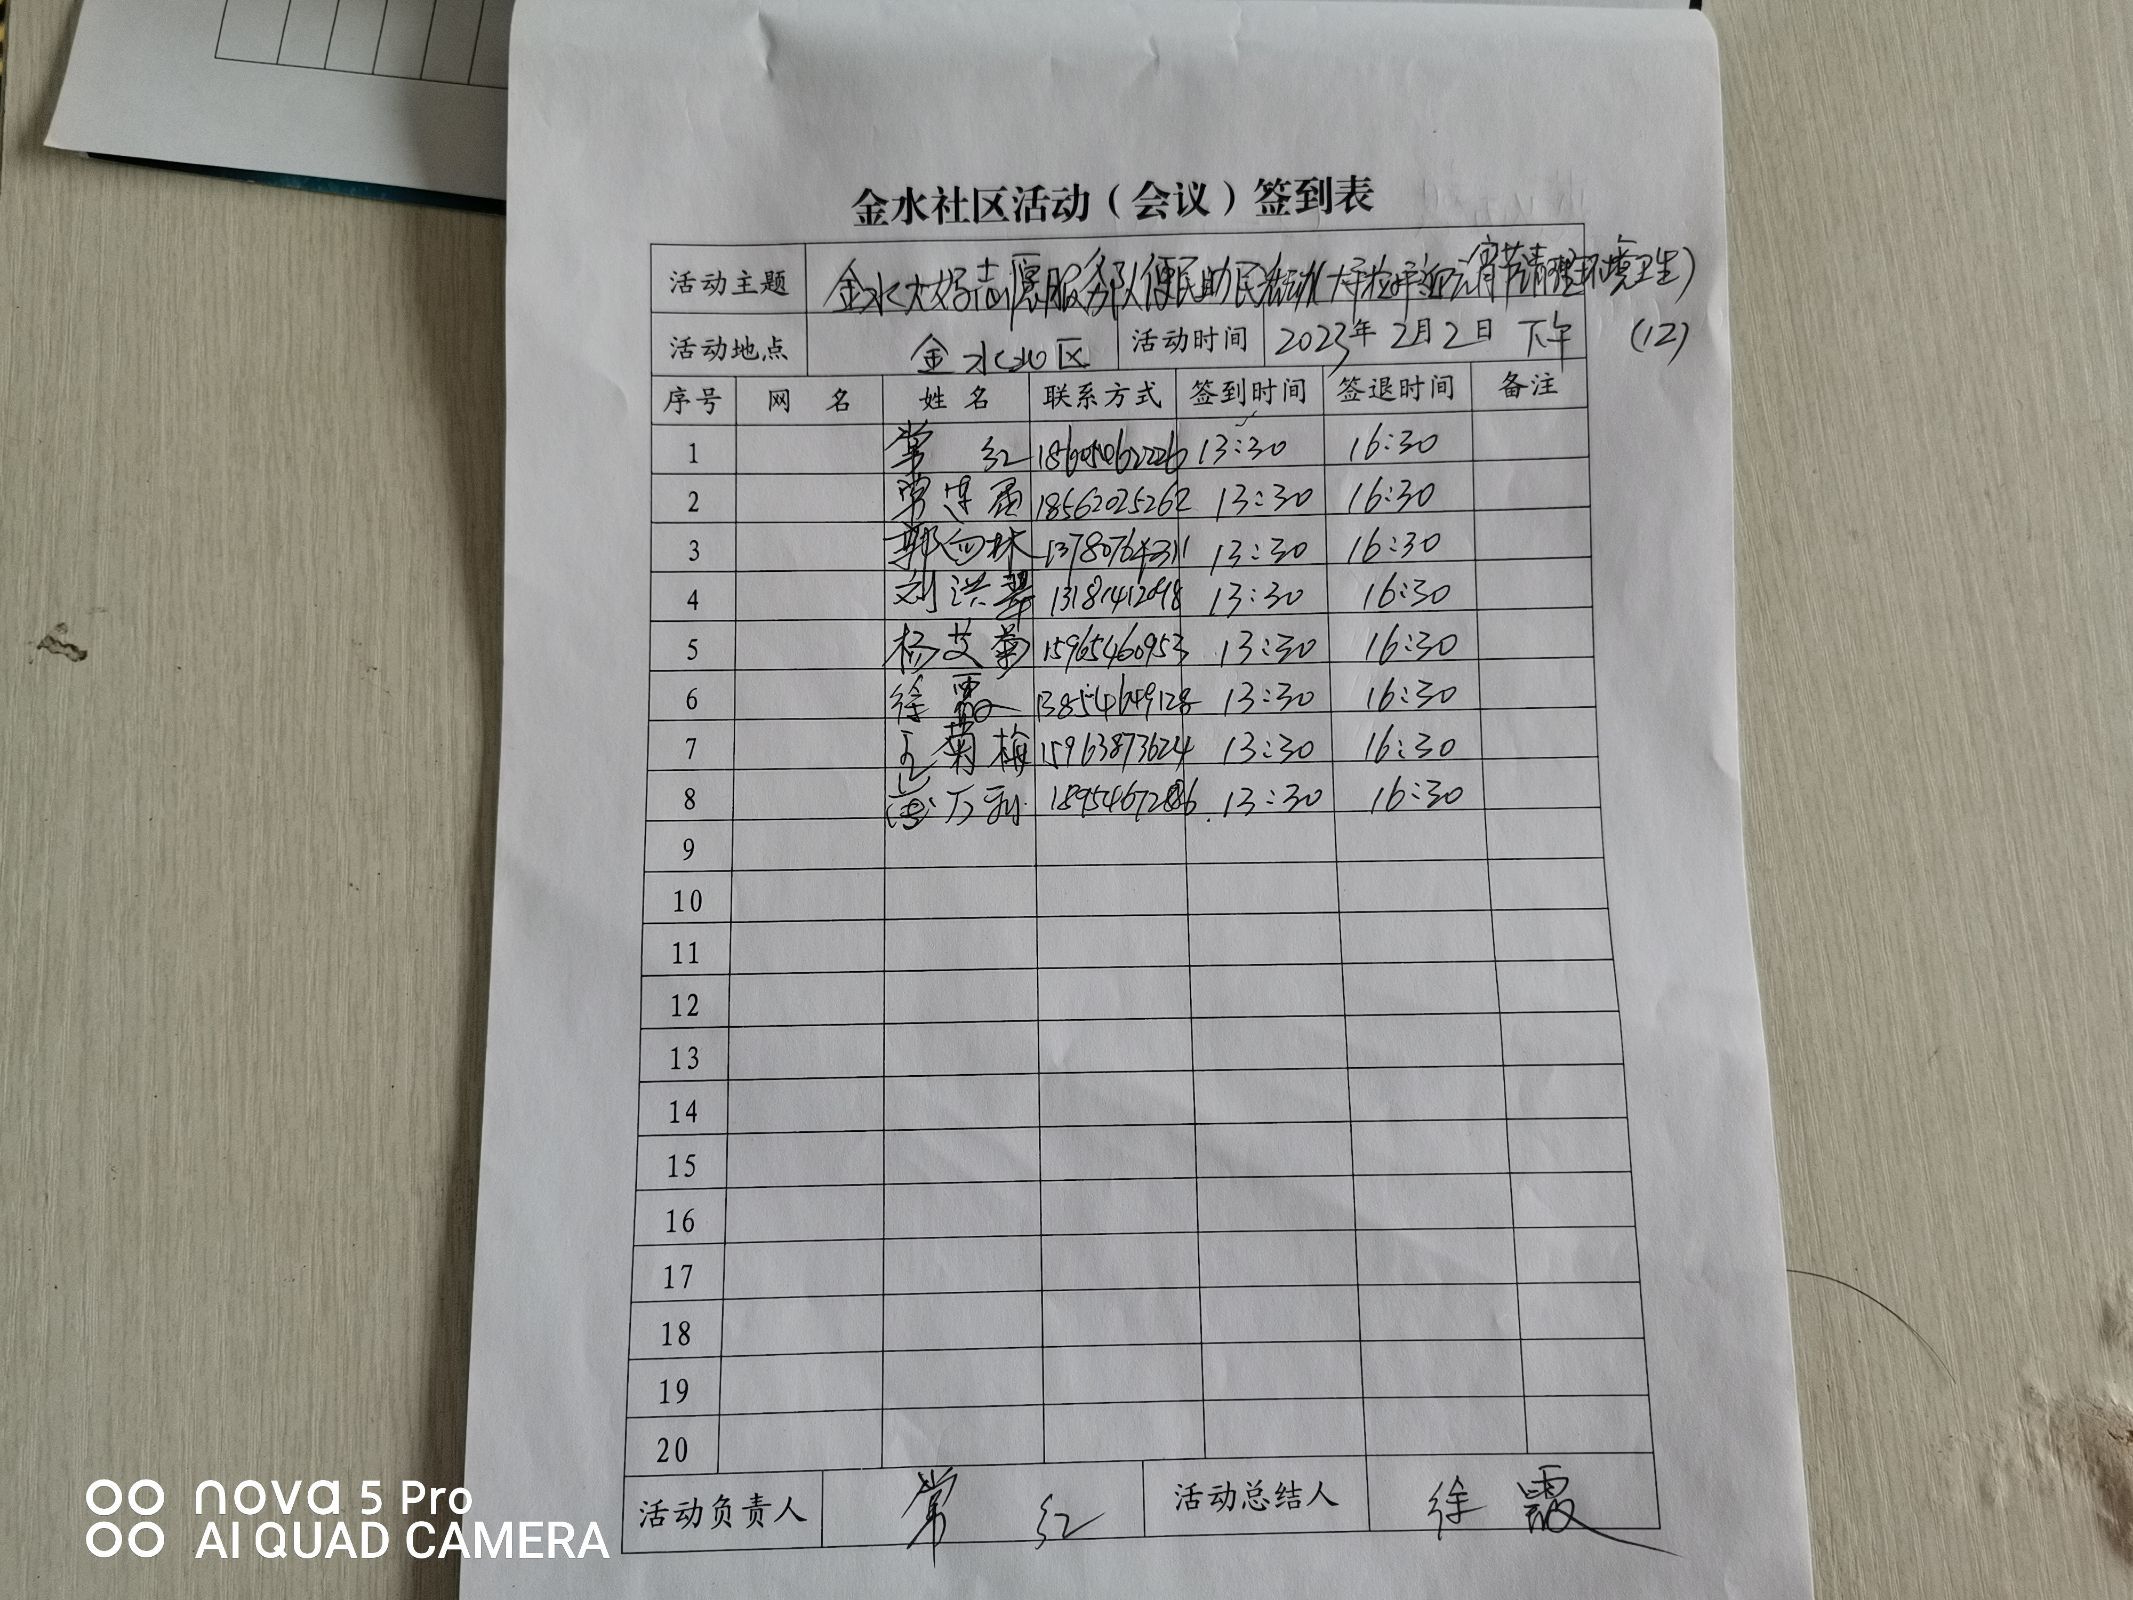 金水社区活动（会议）签到表
活动主题 金水大嫂志愿服务队便民助民活动(大手拉小手迎元宵节清理环境卫生)
活动地点 金水社区 活动时间 2023年2月2日 下午 (12)
序号 网 名 姓 名 联系方式 签到时间 签退时间 备注
1 常 红 13:30 16:30
2 常连 18562025262 13:30 16:30
3 郭 林 13780764311 13:30 16:30
4 刘洪翠 13181412098 13:30 16:30
5 杨艾菊 15965460953 13:30 16:30
6 徐霞 13854649128 13:30 16:30
7 王菊梅 15963873624 13:30 16:30
8 万利 13:30 16:30
9
10
11
12
13
14
15
16
17
18
19
20
活动负责人 常 红 活动总结人 徐 霞
nova 5 Pro
AI QUAD CAMERA